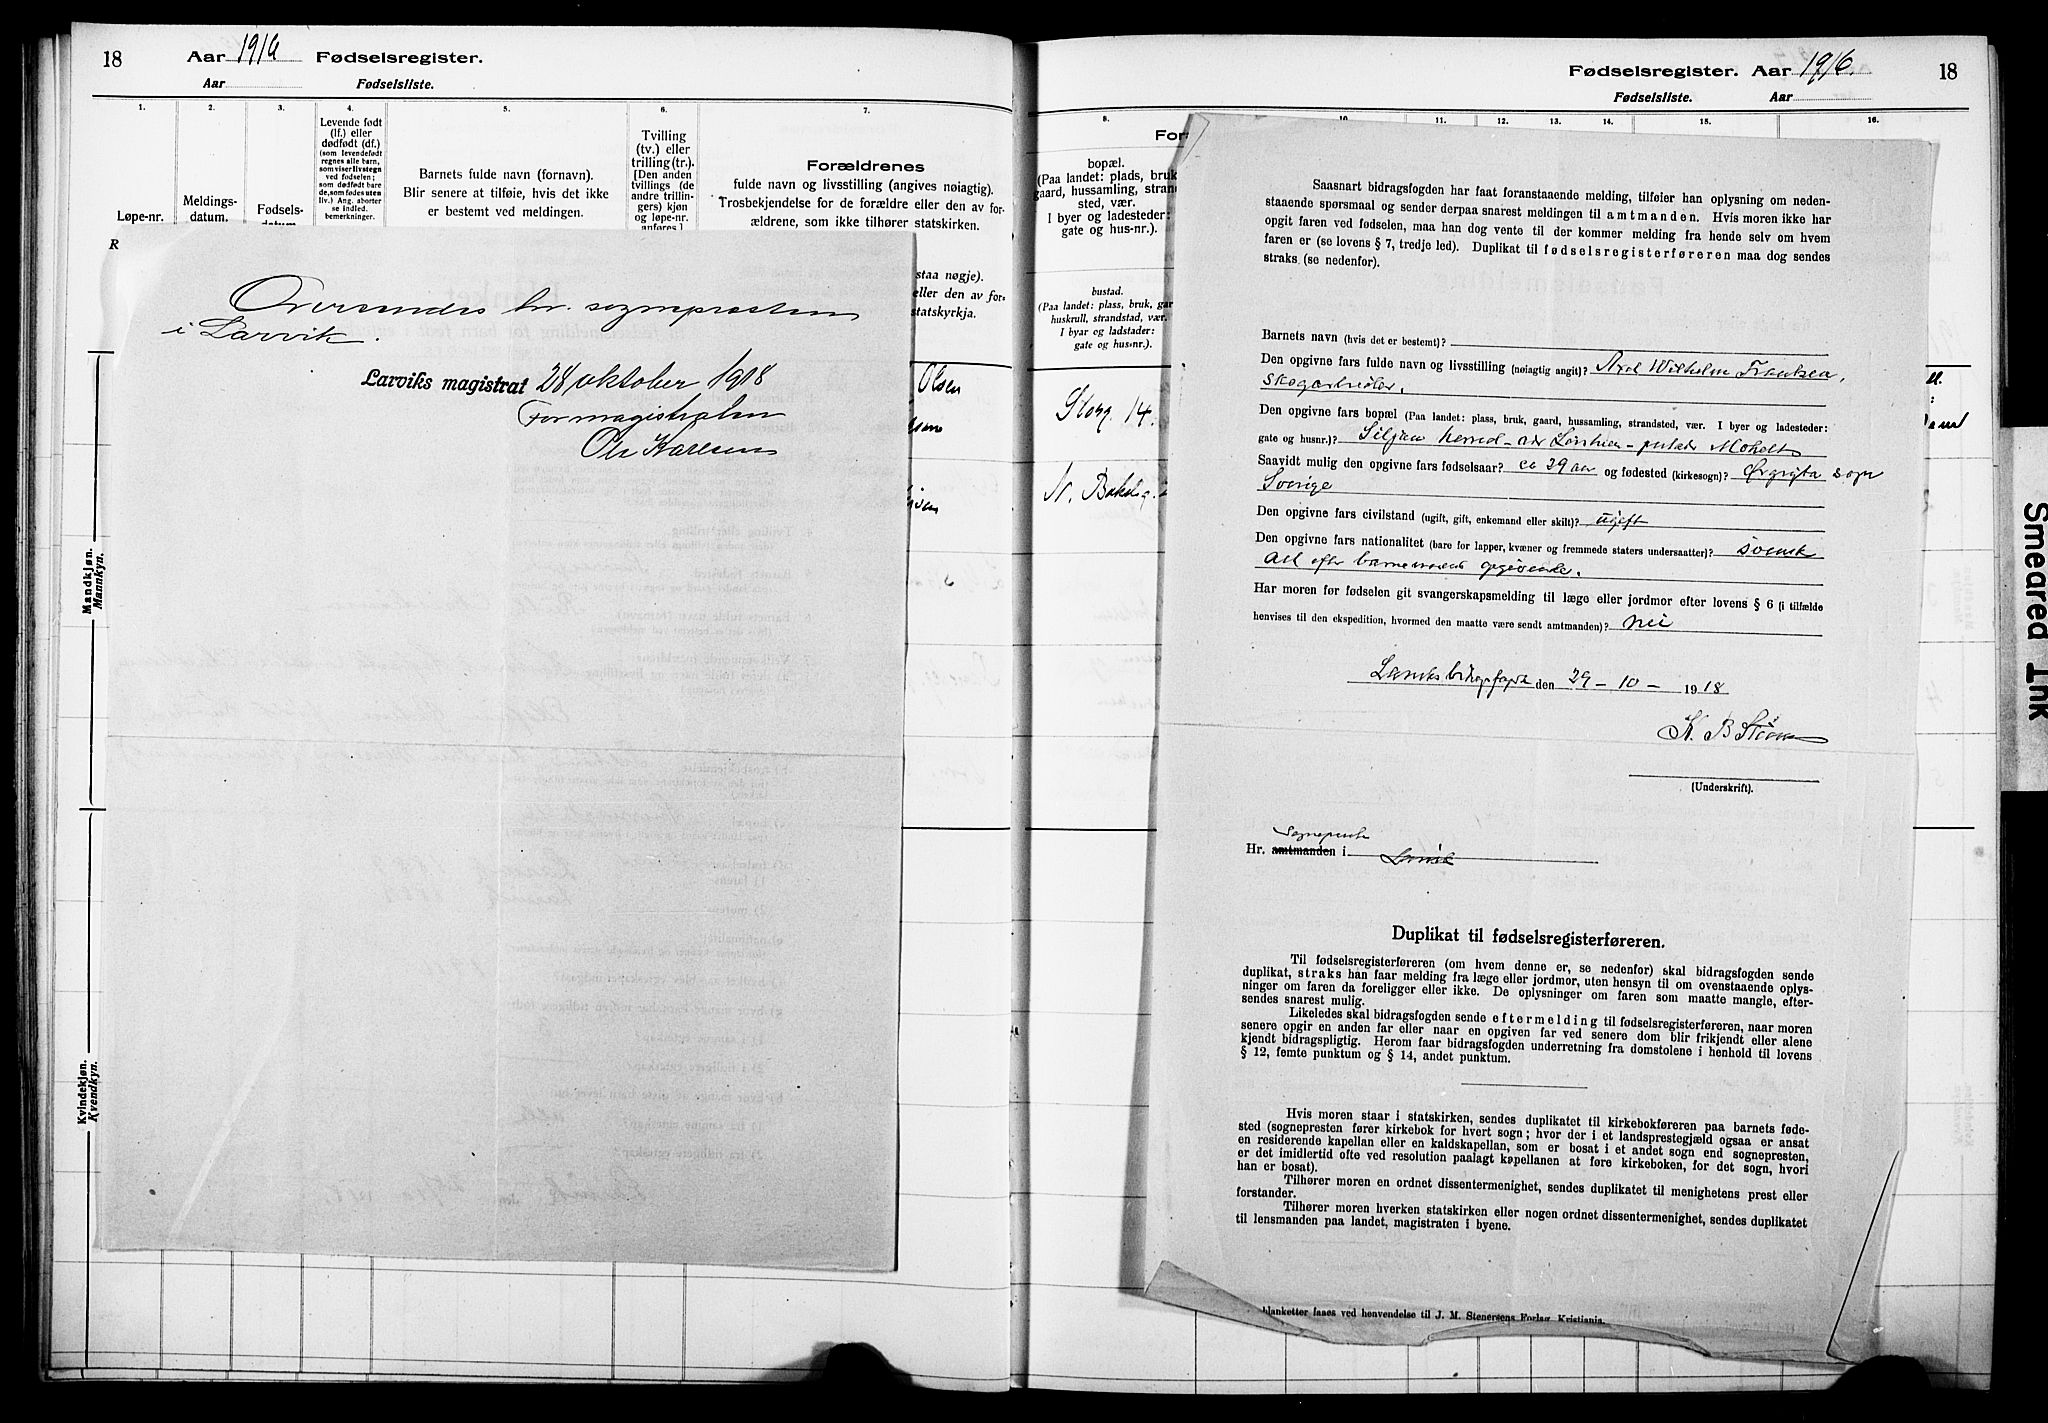 18 Aar 1916 Fødselsregister.
Aar Fødselsliste.
1. 2. 3. 4. 5. 6. 7.
Løpe-nr.
Meldings-
datum.
Fødsels-
datum.
Levende født
(lf.) eller
dødfødt (df.)
(som levendefødt
regnes alle barn,
som viser livstegn
ved fødselen;
som dødfødt bare
de, som fødes uten
liv.) Ang. aborter
se indled.
bemerkninger.
Barnets fulde navn (fornavn).
Blir senere at tilføie, hvis det ikke
er bestemt ved meldingen.
Tvilling
(tv.) eller
trilling (tr.).
[Den anden
tvillings (de
andre trillin-
gers) kjøn
og løpe-nr.
anføres.]
Forældrenes
fulde navn og livsstilling (angives nøiagtig).
Trosbekjendelse for de forældre eller den av for-
ældrene, som ikke tilhører statskirken.
R
staa nøgje).
eller den av for-
statskyrkja.
Oversendes hr. sognepresten
i Larvik.
Larviks magistrat 28 oktober 1918
For magistraten
Ole Karlsen
Olsen
Mandkjøn.
Mannkyn.
Kvindekjøn.
Kvendkyn.
Fødselsregister. Aar 1916. 18
Fødselsliste. Aar
8. 10. 11. 12. 13. 14. 15. 16.
For
bopæl.
(Paa landet: plads, bruk,
gaard, hussamling, strand-
sted, vær.
I byer og ladesteder:
gate og hus-nr.).
bustad.
(Paa landet: plass, bruk, gar
huskrull, strandstad, vær.
I byar og ladstader:
gate og hus-nr.).
Storg. 14.
N. Bakeg.
Saasnart bidragsfogden har faat foranstaaende melding, tilføier han oplysning om neden-
staaende spørsmaal og sender derpaa snarest meldingen til amtmanden. Hvis moren ikke har
opgit faren ved fødselen, maa han dog vente til der kommer melding fra hende selv om hvem
faren er (se lovens § 7, tredje led). Duplikat til fødselsregisterføreren maa dog sendes
straks (se nedenfor).
Barnets navn (hvis det er bestemt)?
Den opgivne fars fulde navn og livsstilling (nøiagtig angit)? Axel Wilhelm Frantzen,
skogarbeider.
Den opgivne fars bopæl (Paa landet: plass, bruk, gaard, hussamling, strandsted, vær. I byer og ladesteder:
gate og husnr.)? Siljan herred - adr - Moholt
Saavidt mulig den opgivne fars fødselsaar? ca 29 aar og fødested (kirkesogn)? sogn
Sverige
Den opgivne fars civilstand (ugift, gift, enkemand eller skilt)? ugift
Den opgivne fars nationalitet (bare for lapper, kvæner og fremmede staters undersaatter)? svensk
Alt efter barnemorens opgivende.
Har moren før fødselen git svangerskapsmelding til læge eller jordmor efter lovens § 6 (i tilfælde
henvises til den ekspedition, hvormed den maatte være sendt amtmanden)? nei
Larviks bidragsfogd den 29 - 10 - 1918
K. B Strøm
(Underskrift).
Sogneprest
Hr. amtmanden i Larvik
Duplikat til fødselsregisterføreren.
Til fødselsregisterføreren (om hvem denne er, se nedenfor) skal bidragsfogden sende
duplikat, straks han faar melding fra læge eller jordmor, uten hensyn til om ovenstaaende oplys-
ninger om faren da foreligger eller ikke. De oplysninger om faren som maatte mangle, efter-
sendes snarest mulig.
Likeledes skal bidragsfogden sende eftermelding til fødselsregisterføreren, naar moren
senere opgir en anden far eller naar en opgiven far ved senere dom blir frikjendt eller alene
kjendt bidragspligtig. Herom faar bidragsfogden underretning fra domstolene i henhold til lovens
§ 12, femte punktum og § 14, andet punktum.
Hvis moren staar i statskirken, sendes duplikatet til kirkebokføreren paa barnets føde-
sted (sognepresten fører kirkebok for hvert sogn; hvor der i et landsprestegjæld ogsaa er ansat
en residerende kapellan eller en kaldskapellan, som er bosat i et andet sogn end sognepresten,
er det imidlertid ofte ved resolution paalagt kapellanen at føre kirkeboken, for det sogn, hvori
han er bosat).
Tilhører moren en ordnet dissentermenighet, sendes duplikatet til menighetens prest eller
forstander.
Tilhører moren hverken statskirken eller nogen ordnet dissentermenighet, sendes duplikatet
til lensmanden paa landet, magistraten i byene.
blanketter faaes ved henvendelse til J. M. Stenersens Forlag, Kristiania.
Smeared Ink